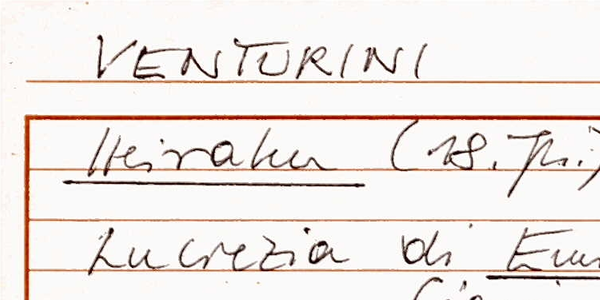 VENTURINI
Heiraten (18. Jh.)
Lucrezia di